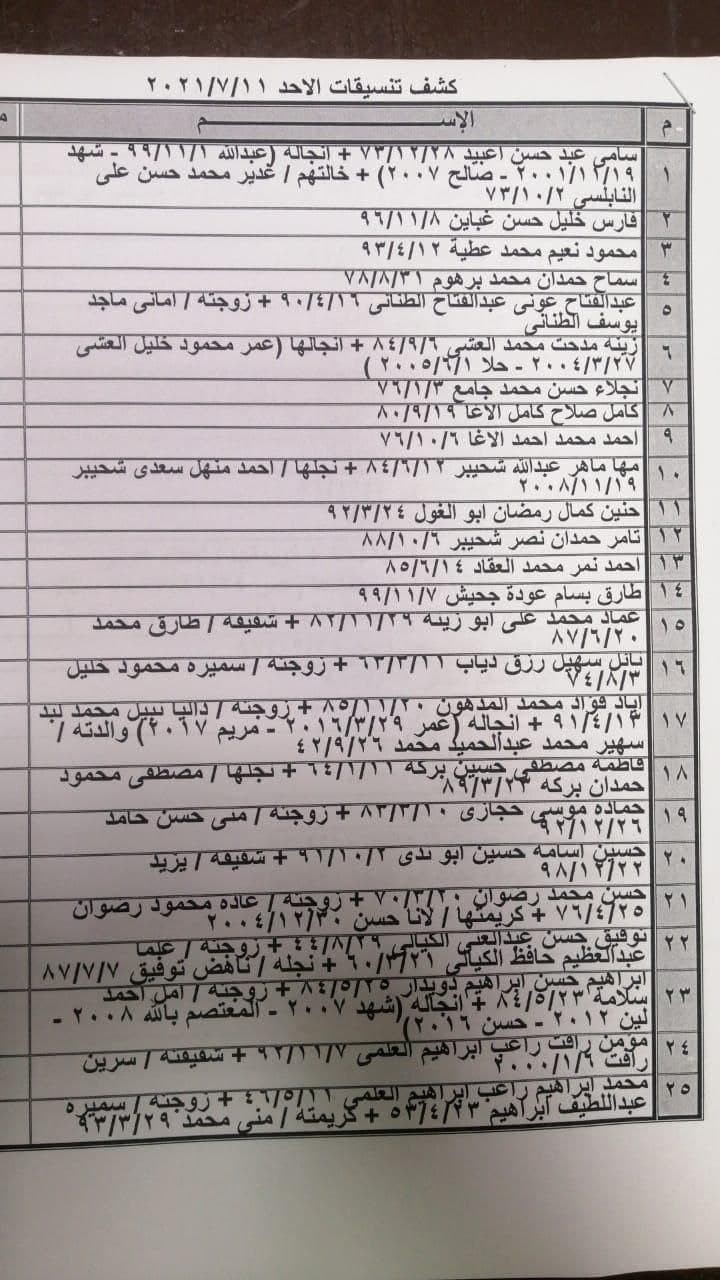 كشف تنسيقات الاحد ٢٠٢١/٧/١١
م الإســـم م
١ سامى عبد حسن اعبيد ٧٣/١٢/٢٨ + انجاله (عبدالله ٩٩/١١/١ - شهد
٢٠٠١/١٢/١٩ - صالح ٢٠٠٧) + خالتهم / غدير محمد حسن على
النابلسي ٧٣/١٠/٢
٢ فارس خليل حسن غباين ٩٦/١١/٨
٣ محمود نعيم محمد عطية ٩٣/٤/١٢
٤ سماح حمدان محمد برهوم ٧٨/٨/٣١
٥ عبدالفتاح عونى عبدالفتاح الطنانى ٩٠/٤/١٦ + زوجته / امانى ماجد
يوسف الطنانى
٦ زينه مدحت محمد العشى ٨٤/٩/٦ + انجالها (عمر محمود خليل العشى
٢٠٠٤/٣/٢٧ - حلا ٢٠٠٥/٦/١ )
٧ نجلاء حسن محمد جامع ٧٦/١/٣
٨ كامل صلاح كامل الاغا ٨٠/٩/١٩
٩ احمد محمد احمد الاغا ٧٦/١٠/٦
١٠ مها ماهر عبدالله شحيبر ٨٤/٦/١٢ + نجلها / احمد منهل سعدى شحيبر
٢٠٠٨/١١/١٩
١١ حنين كمال رمضان ابو الغول ٩٢/٣/٢٤
١٢ تامر حمدان نصر شحيبر ٨٨/١٠/٦
١٣ احمد نمر محمد العقاد ٨٥/٦/١٤
١٤ طارق بسام عودة جحيش ٩٩/١١/٧
١٥ عماد محمد على ابو زينه ٨٢/١١/٢٩ + شقيقه / طارق محمد
٨٧/٦/٢٠
١٦ سهيل رزق دياب ٦٣/٣/١١ + زوجته / سميره محمود خليل
٧٤/٨/٣
١٧ اياد فؤاد محمد المدهون ٨٥/١١/٢٠ + زوجته / داليا نبيل محمد لبد
٩١/٤/١٣ + انجاله (عمر ٢٠١٦/٣/٢٩ - مريم ٢٠١٧) والدته /
سهير محمد عبدالحميد محمد ٤٢/٩/٢٦
١٨ فاطمه مصطفى حسين بركه ٦٤/١/١١ + نجلها / مصطفى محمود
حمدان بركه ٨٩/٣/٢٣
١٩ حماده موسى حجازى ٨٣/٣/١٠ + زوجته / منى حسن حامد
٩٢/١٢/٢٦
٢٠ حسين اسامه حسين ابو ندى ٩١/١٠/٢ + شقيقه / يزيد
٩٨/١٢/٢٢
٢١ حسن محمد رضوان ٧٠/٣/٢٠ + زوجته / غاده محمود رضوان
٧٦/٤/٢٥ + كريمتها / لانا حسن ٢٠٠٤/١٢/٣٠
٢٢ توفيق حسن عبدالغنى الكيالى ٤٤/٨/٢٩ + زوجته /
عبدالعظيم حافظ الكيالى ٦٠/٣/٢١ + نجله / ناهض توفيق ٨٧/٧/٧
٢٣ ابراهيم حسن ابراهيم دويدار ٨٤/٥/٢٥ + زوجته / امل احمد
سلامه ٨٤/٥/٢٣ + انجاله (شهد ٢٠٠٧ - المعتصم بالله ٢٠٠٨ -
لين ٢٠١٢ - حسن ٢٠١٦)
٢٤ مؤمن رأفت راغب ابراهيم العلمى ٩٢/١١/٧ + شقيقته / سرين
رافت ٢٠٠٠/١/٦
٢٥ محمد ابراهيم راغب ابراهيم العلمى ٤٦/٥/١١ + زوجته / سميره
عبداللطيف ابراهيم ٥٣/٤/٢٣ + كريمته / منى محمد ٩٣/٣/٢٩